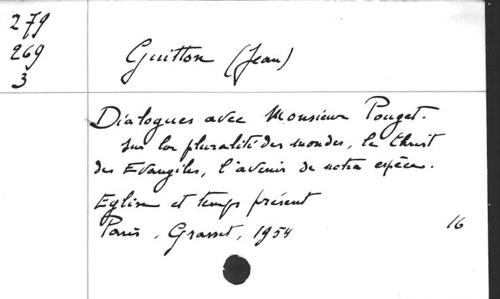 279
269
3
Guitton (Jean)
Dialogues avec Monsieur Pouget.
Sur la pluralité des mondes, le Christ
des Evangiles, l'avenir de notre espèce.
Eglise et temps présent
Paris, Grasset, 1954
16